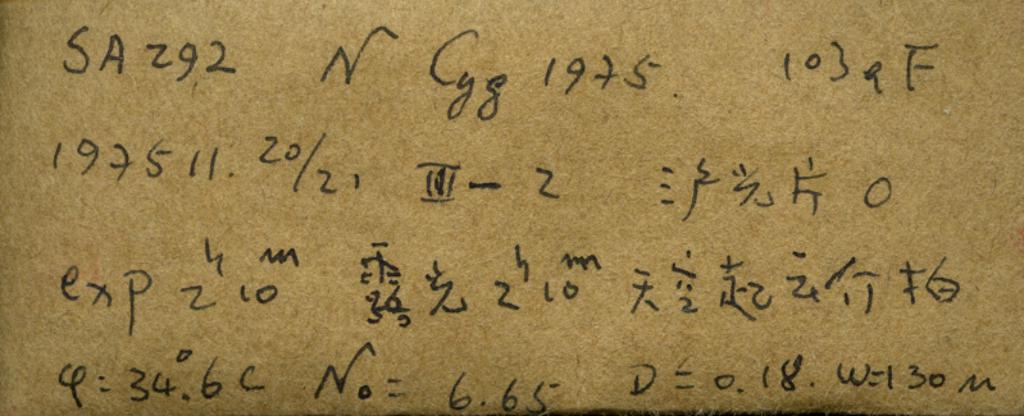 SA 292 N Cyg 1975. 103aF
1975 11. 20/21 III-2 沪光片 0
exp 2h 10m 露光 2h 10m 天空起云 拍
φ=34°.6 C No= 6.65 D=0.18. W=130 μ